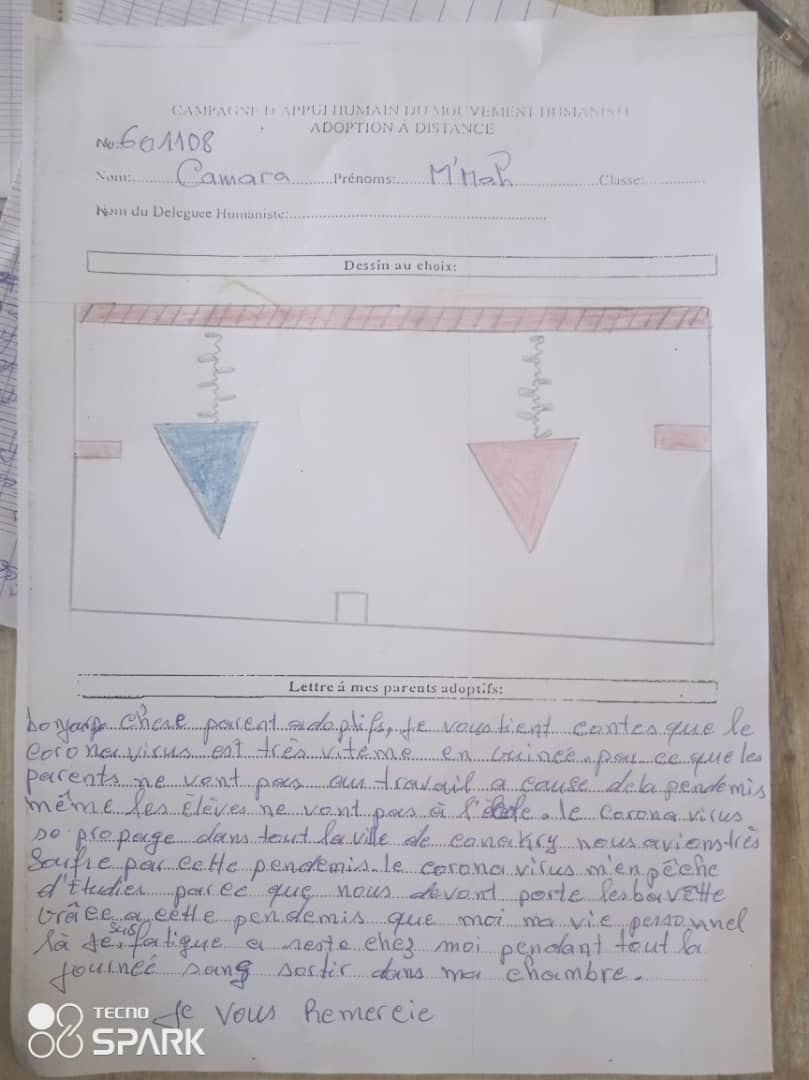 CAMPAGNE D'APPUI HUMAIN DU MOUVEMENT HUMANISTE
ADOPTION À DISTANCE
No: 601108
Nom: Camara Prénoms: M'Mah Classe:
Nom du Deleguee Humaniste:
Dessin au choix:
Lettre á mes parents adoptifs:
chere parent adoptifs, je vous tient contes que le
corona virus est très vitème en Guinée. par ce que les
parents ne vont pas au travail a cause de la pendemis
même les élèves ne vont pas à l'école. le corona virus
se propage dans tout la ville de conakry nous avions très
Soufre par cette pendemis. le corona virus m'enpêche
d'Etudier parce que nous devont porte les bavette
Grâce a cette pendemis que moi ma vie personnel
là je suis fatigue a reste chez moi pendant tout la
journeé sang sortir dans ma chambre.
Je vous Remercie
TECNO
SPARK